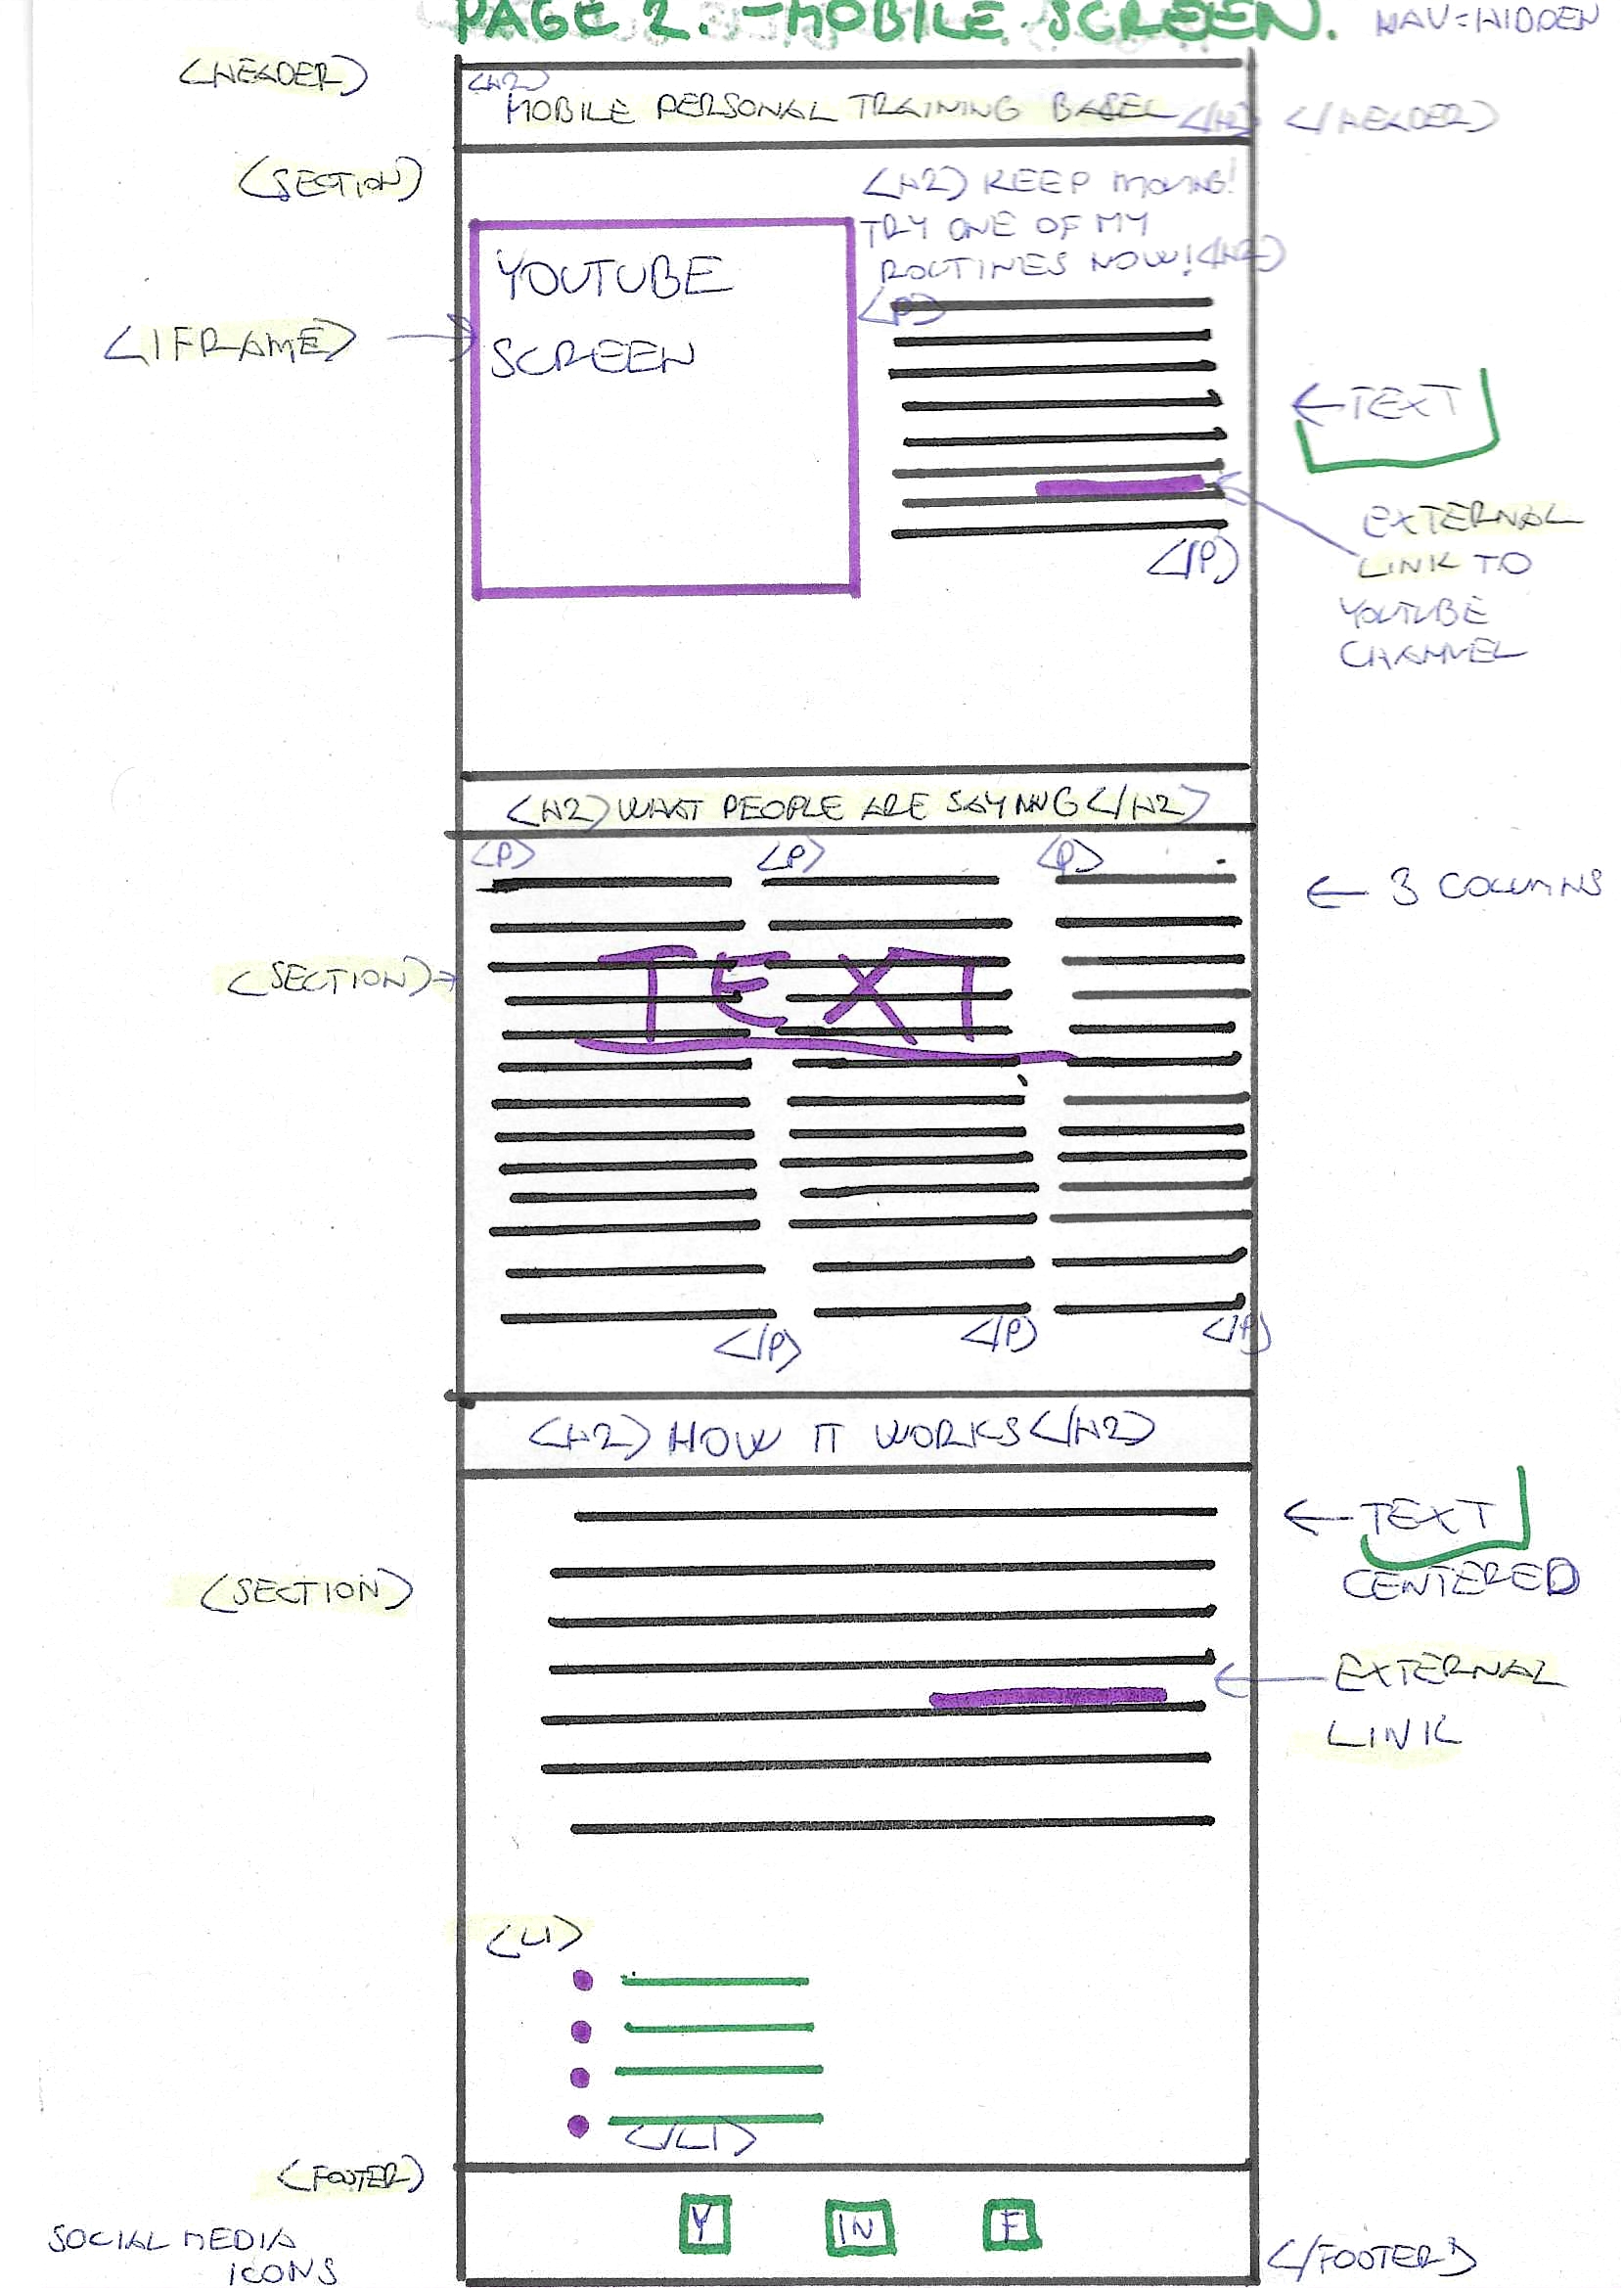 PAGE 2. - MOBILE SCREEN. NAV = HIDDEN
<HEADER>
<H2>
MOBILE PERSONAL TRAINING BASEL </H2> </HEADER>
<SECTION>
<H2> KEEP MOVING!
TRY ONE OF MY
ROUTINES NOW! <H2>
<P>
YOUTUBE
SCREEN
<IFRAME>
TEXT
</P>
EXTERNAL
LINK TO
YOUTUBE
CHANNEL
<H2> WHAT PEOPLE ARE SAYING </H2>
<P> <P> <P>
3 COLUMNS
<SECTION>
TEXT
</P> </P> </P>
<H2> HOW IT WORKS </H2>
TEXT
CENTERED
<SECTION>
EXTERNAL
LINK
<LI>
</LI>
<FOOTER>
Y IN F
SOCIAL MEDIA
ICONS
</FOOTER>